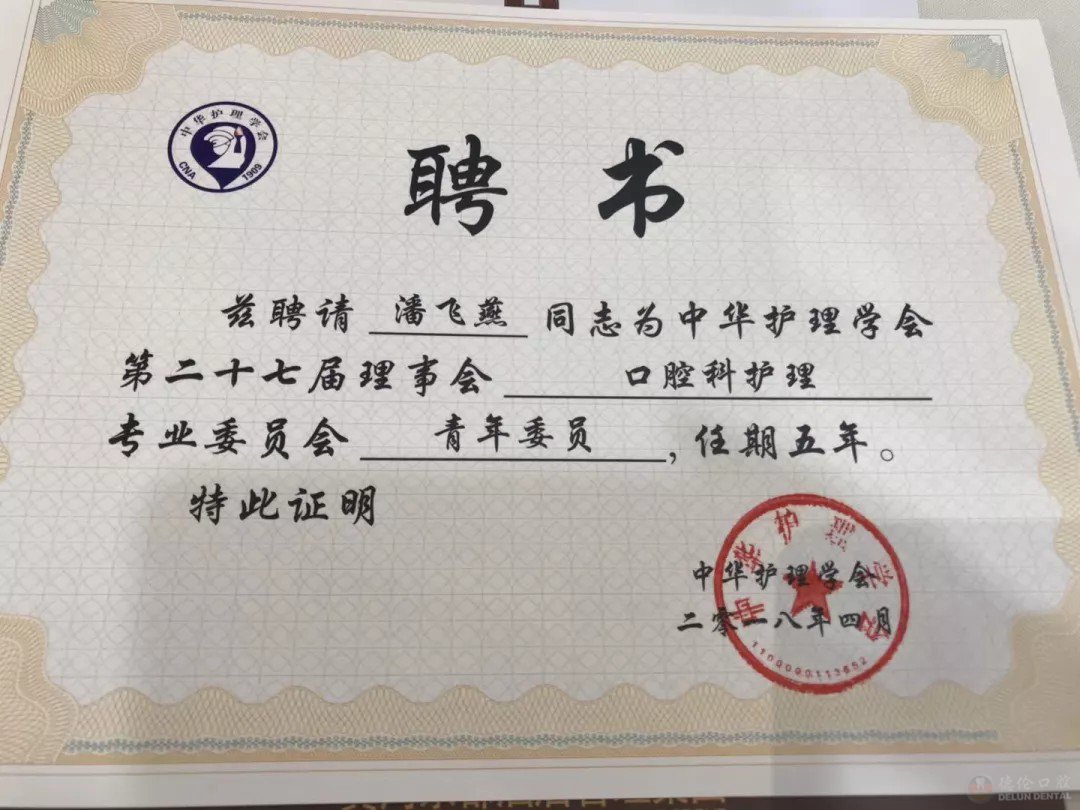 中华护理学会
CNA 1909
聘书
兹聘请 潘飞燕 同志为中华护理学会
第二十七届理事会 口腔科护理
专业委员会 青年委员,任期五年。
特此证明
中华护理学会
中华护理学会
二零一八年四月
1100000113652
德伦口腔
DELUN DENTAL